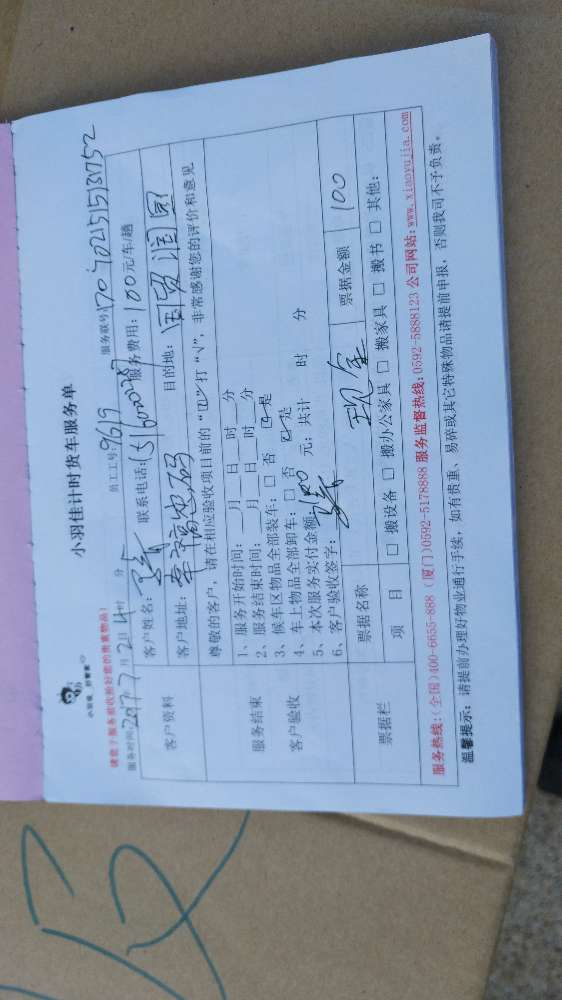 小羽佳计时货车服务单
小羽佳，好管家
请您于服务前收捡好您的贵重物品！
服务时间：2017年7月2日 4时 分 员工工号：9619 服务联号：1707021515131752
客户资料
客户姓名： 联系电话： 服务费用：100元/车/趟
客户地址：幸福也码 目的地：国贸润园
服务结束
客户验收
尊敬的客户，请在相应验收项目前的“□”打“√”，非常感谢您的评价和意见
1、服务开始时间： 月 日 时 分
2、服务结束时间： 月 日 时 分
3、候车区物品全部装车：□ 否 ☑ 是
4、车上物品全部卸车：□ 否 ☑ 是
5、本次服务实付金额：100 元；共计 时 分
6、客户验收签字：
票据栏
票据名称 现金 票据金额 100
项 目 □ 搬设备 □ 搬办公家具 □ 搬家具 □ 搬书 □ 其他：
服务热线：(全国)400-6655-888 (厦门)0592-5178888 服务监督热线：0592-5888123 公司网站：www.xiaoyujia.com
温馨提示：请提前办理好物业通行手续，如有贵重、易碎或其它特殊物品请提前申报，否则我司不予负责。